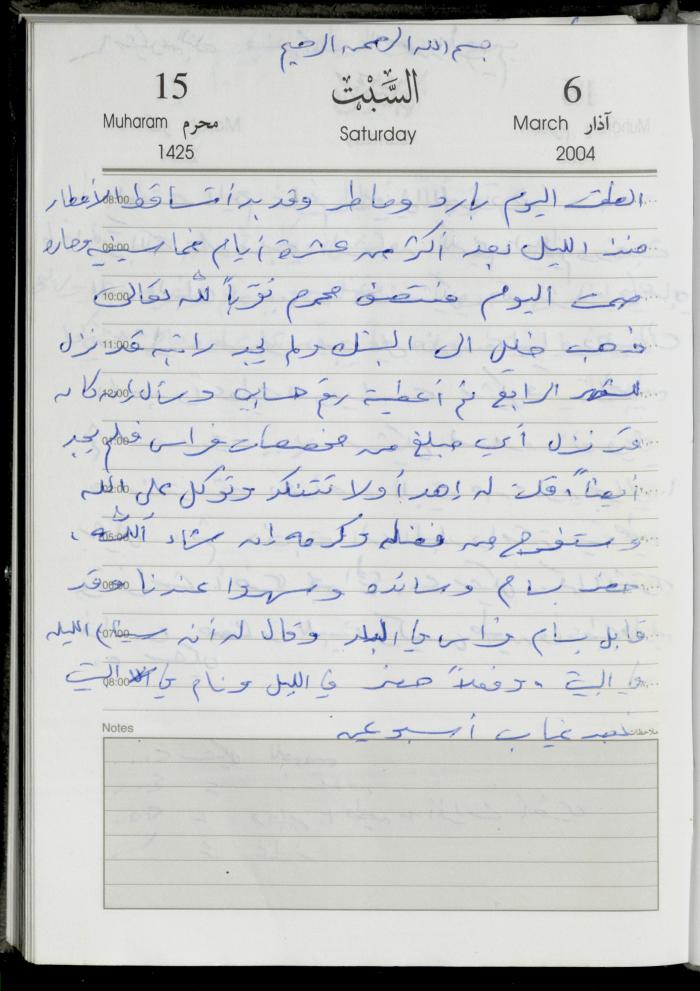 بسم الله الرحمن الرحيم
15 السَّبْت 6
Muharam محرم Saturday March آذار
1425 2004
الطقس اليوم بارد وماطر وقد بدأ تساقط الأمطار
08:00
منذ الليل بعد أكثر من عشرة أيام خماسينية وحارة
09:00
صمت اليوم منتصف محرم تقرباً لله تعالى
10:00
ذهب خليل الى البنك ولم يجد راتبه قد نزل
11:00
للشهر الرابع ثم أعطيته رقم حسابي وسأل إن كان
12:00
قد نزل أي مبلغ من مخصصات فراس فلم يجد
01:00
أيضاً، قلت له إهدأ ولا تتنكد وتوكل على الله
02:00
وستفرج من فضله وكرمه إن شاء الله.
05:00
حضر بسام وسائده وسهروا عندنا وقد
06:00
قابل بسام فراس في البلد وقال له أنه سينام الليله
07:00
في البيت. وفعلاً حضر في الليل ونام في البيت
08:00
بعد غياب أسبوعين
Notes ملاحظات